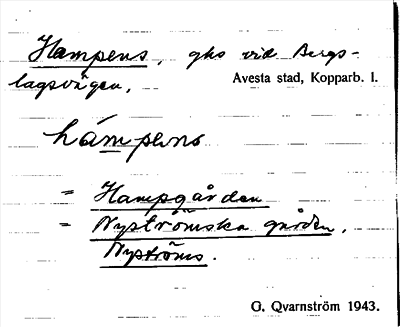 Hampens, gho vid Bergs-
lagsvägen,
Avesta stad, Kopparb. l.
hámpens
= Hampgården
= Nyströmska gården,
Nyströms.
G. Qvarnström 1943.